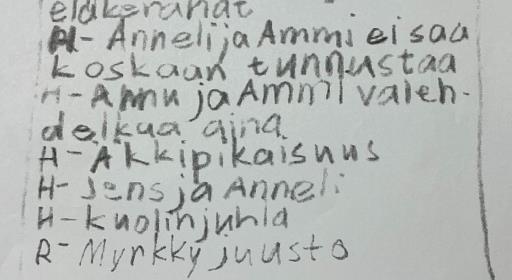 eläkerahat
H-Annelija Ammi ei saa
koskaan tunnustaa
H-Amu ja Ammi valeh-
delkaa aina
H-Äkkipikaisuus
H-Jens ja Anneli
H-kuolinjuhla
R-Myrkkyjuusto